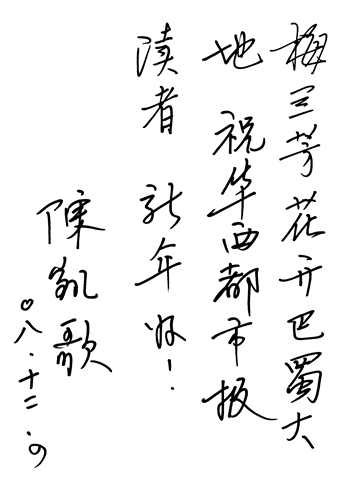 梅兰芳花开巴蜀大
地 祝华西都市报
读者 新年好！
陳凱歌
〇八.十二.四